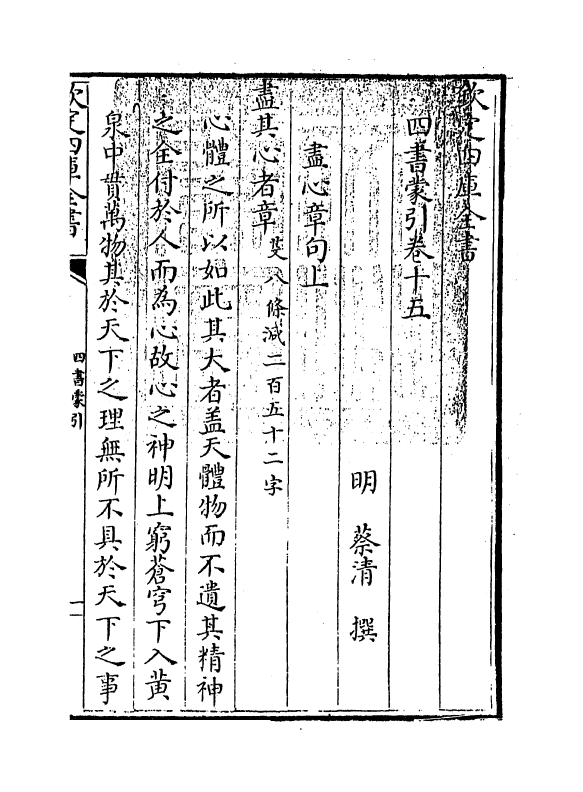 欽定四庫全書
四書蒙引卷十五
明 蔡清 撰
盡心章句上
盡其心者章
八條減二百五十二字
心體之所以如此其大者盖天體物而不遺其精神
之全付於人而為心故心之神明上窮蒼穹下入黄
泉中貫萬物其於天下之理無所不具於天下之事
欽定四庫全書
四書蒙引
一